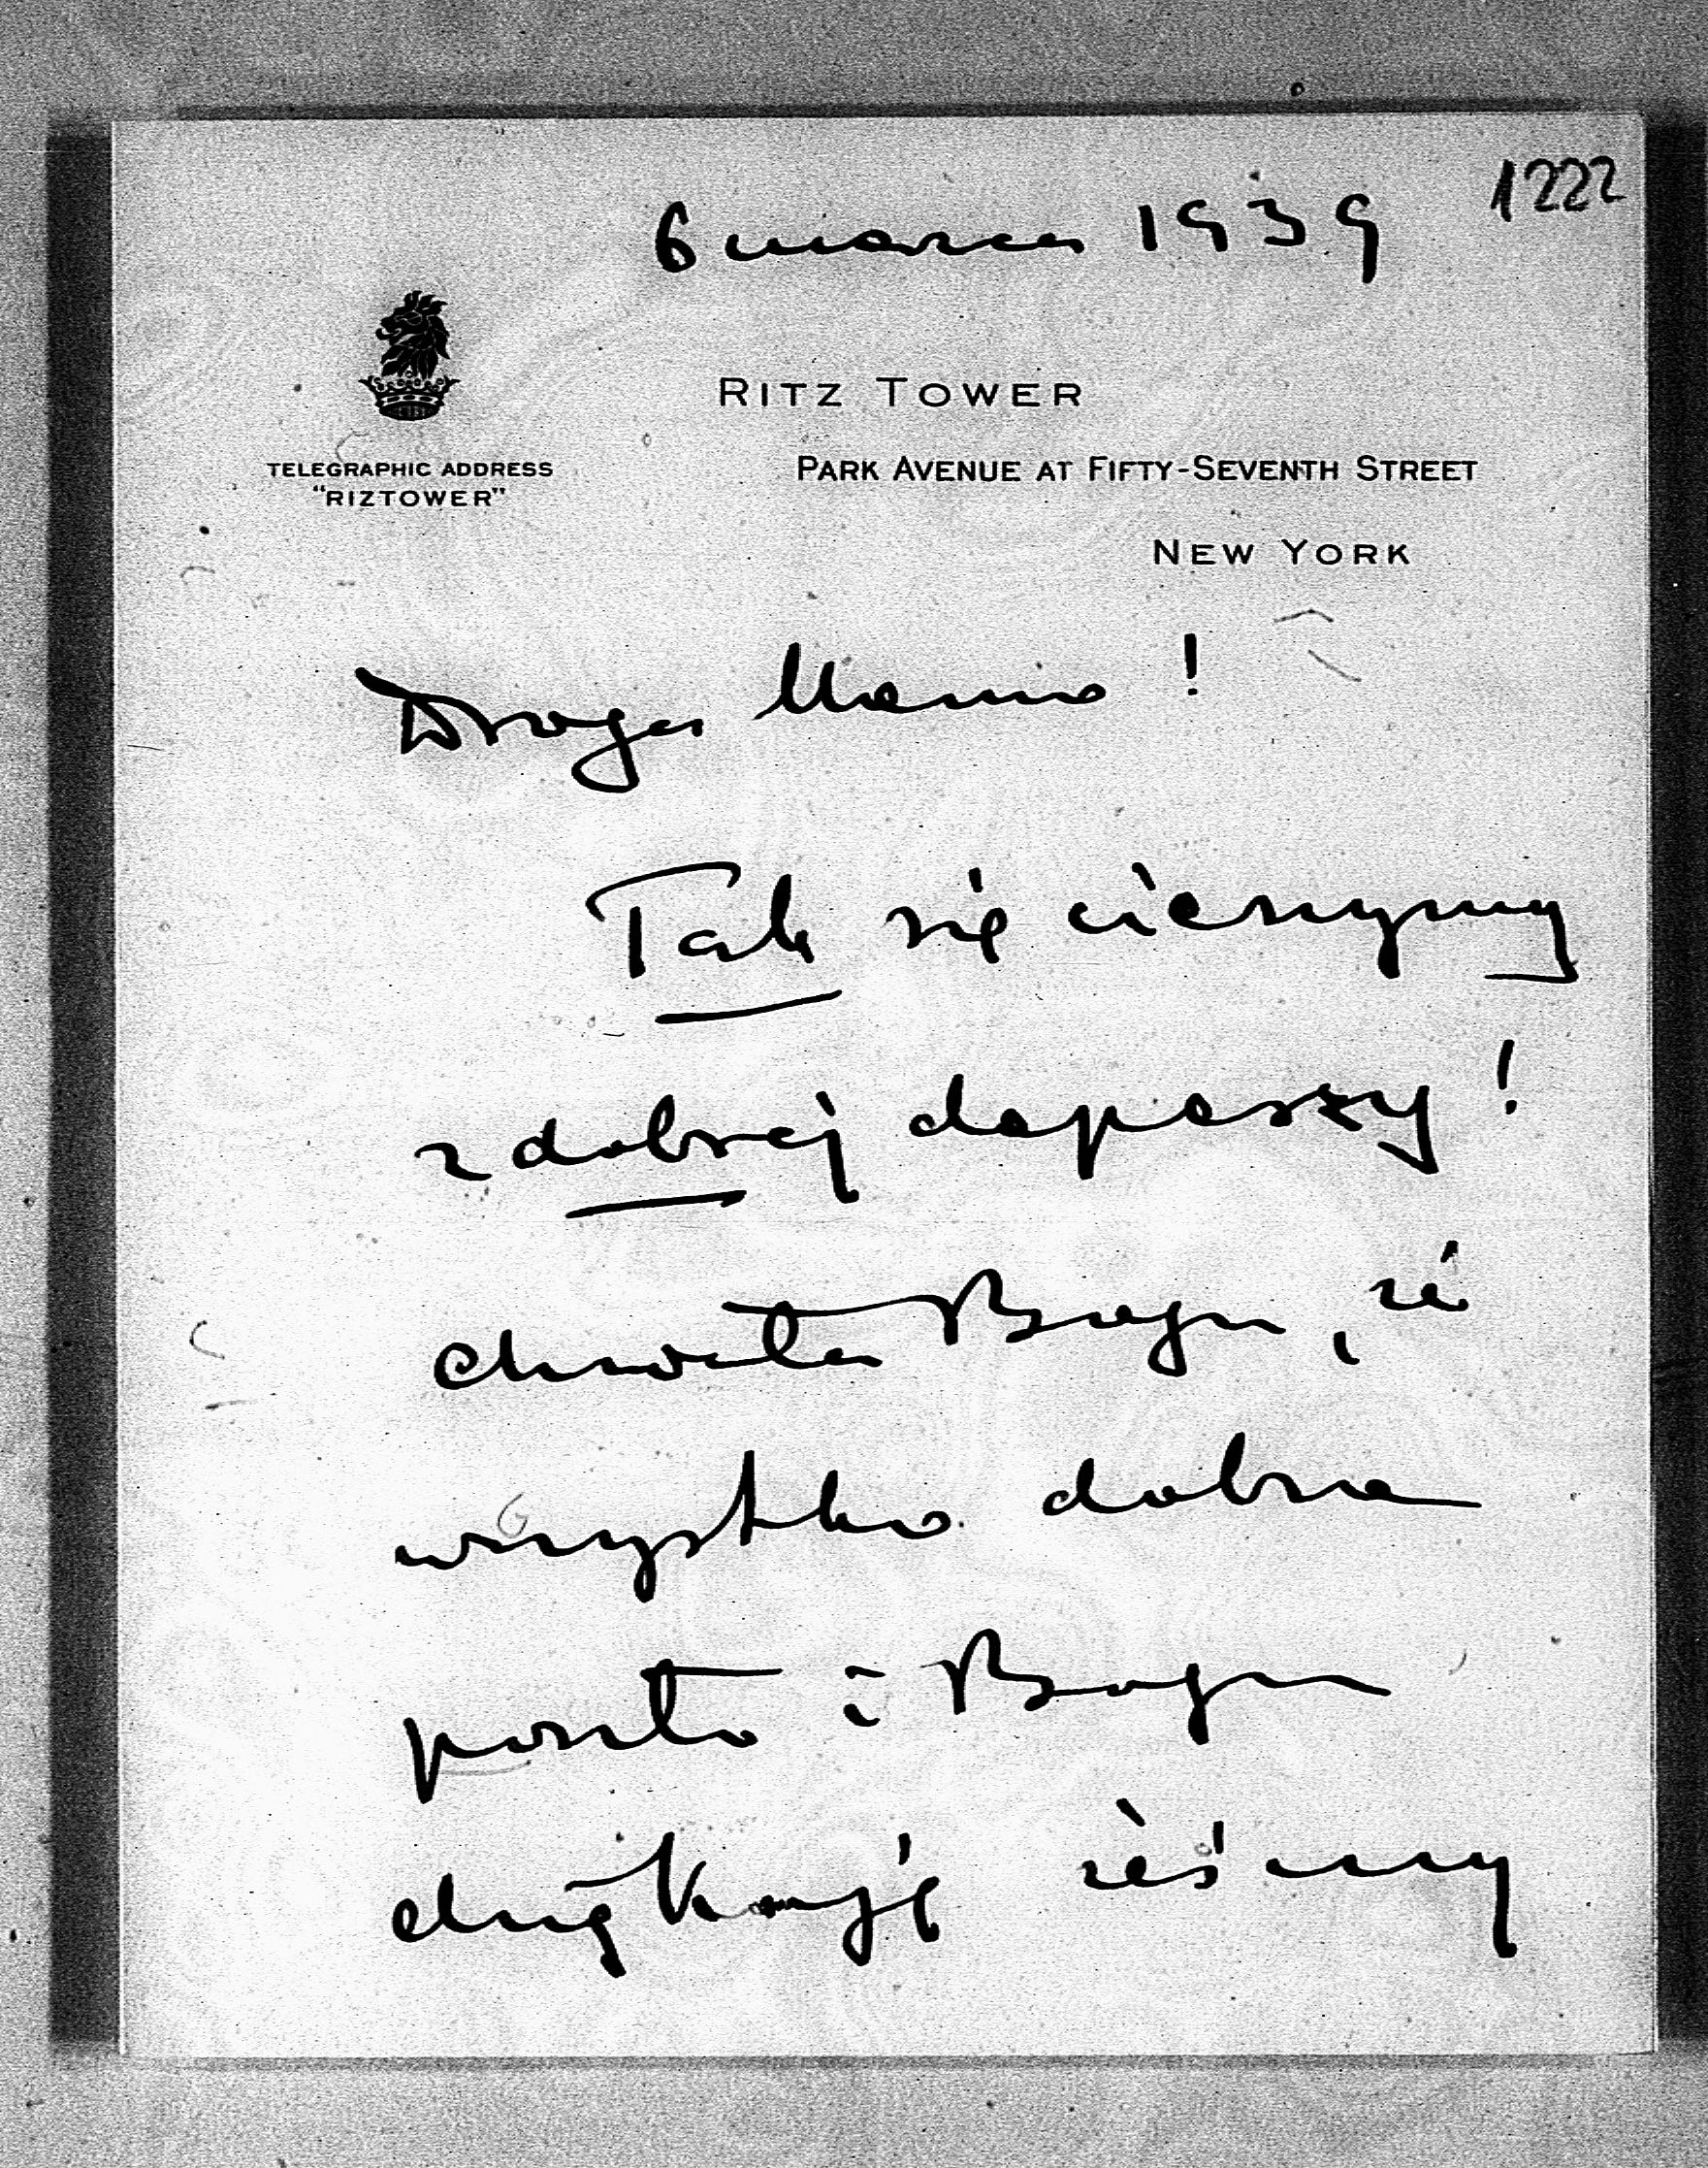 1222
6 marca 1939
RITZ TOWER
TELEGRAPHIC ADDRESS
"RIZTOWER"
PARK AVENUE AT FIFTY-SEVENTH STREET
NEW YORK
Droga Maniu!
Tak się cieszymy
z dobrej depeszy!
chwała Bogu, że
wszystko dobrze
poszło i Bogu
dziękuję żeśmy